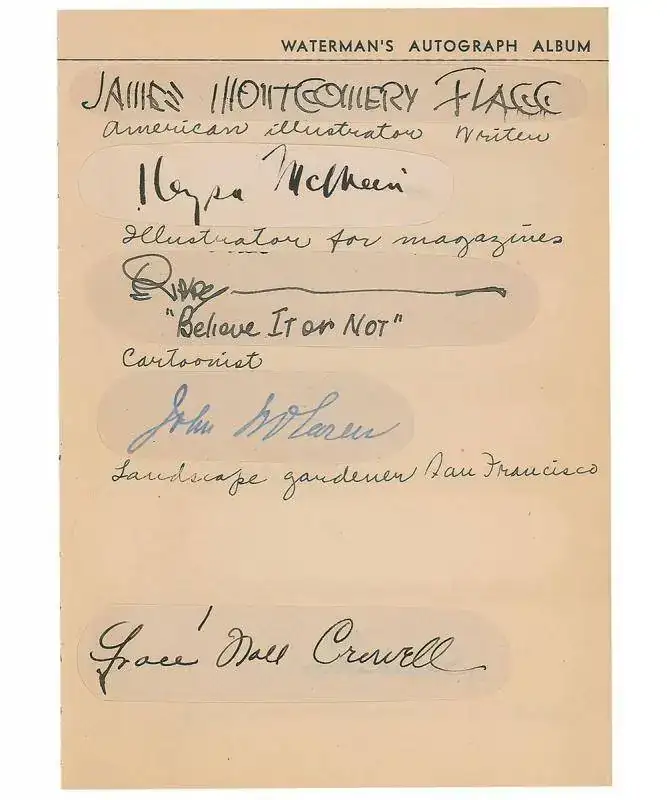 WATERMAN'S AUTOGRAPH ALBUM
JAMES MONTGOMERY FLAGG
American illustrator Writer
Neysa McMein
Illustrator for magazines
Ripley
"Believe It or Not"
Cartoonist
John McLaren
Landscape gardener San Francisco
Grace Noll Crowell